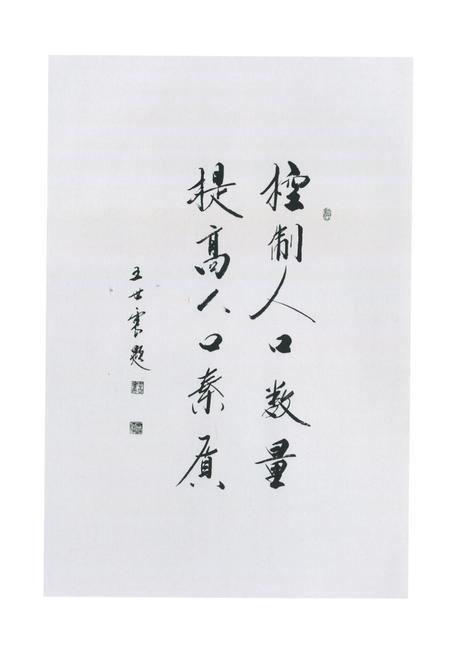 控制人口数量
提高人口素质
王世震题